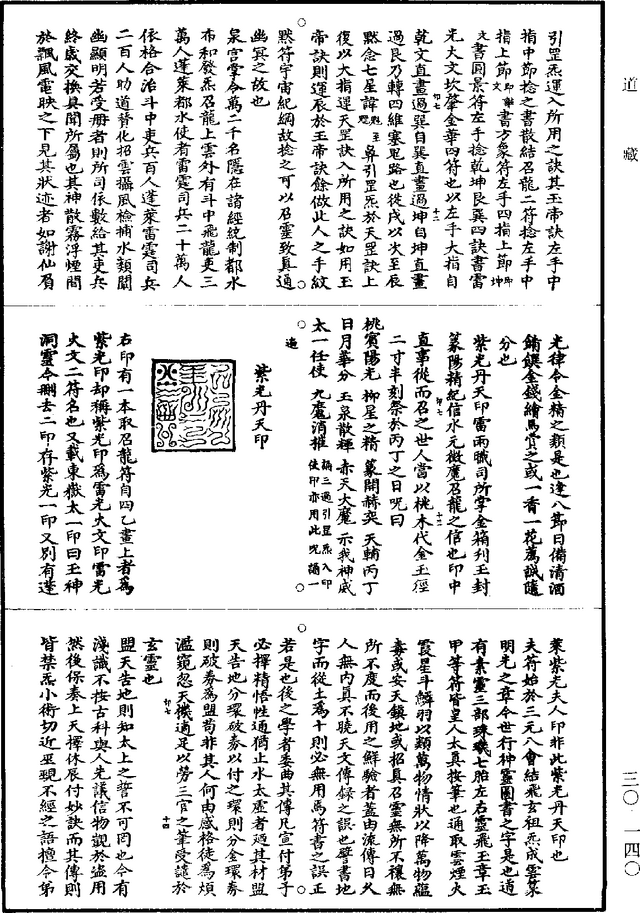 道藏
三〇—一四〇
引罡炁運入所用之訣其玉帝訣左手中
指中節捻之書散結召龍二符捻左手中
指上節印聯書方象符左手四指上節印坤
文書圓景符左手捻乾坤艮巽四訣書雷
光大文坎肇金華四符也以左手大指自
乾文直畫過巽自巽直畫過坤自坤直畫
過艮乃轉四維塞鬼路也從戌以次至辰
默念七星諱魁至 鼻引罡炁於天罡訣上
復以大指運天罡訣入所用之訣如用玉
帝訣則運辰於玉帝訣餘倣此人之手紋
默符宇宙紀綱故捻之可以召靈致真通
幽冥之故也
泉宫掌令萬二千名隱在諸經統制都水
布和發炁召龍上雲外有斗中飛龍吏三
萬人蓬萊都水使者雷霆司兵二十萬人
依格合治斗中吏兵百人蓬萊雷霆司兵
二百人助道替化招雲攝風檢捕水類關
幽顯明若受册者則所司依數給其吏兵
終歲交換具聞所屬也其神散霧浮煙間
於飄風電映之下見其狀迹者如謝仙眉
光律令金精之類是也逢八節日備清酒
餚饌金錢繪馬賞之或一香一花薦誠隨
分也
紫光丹天印雷雨職司所掌金箱列玉封
篆陽精紀信水元微魔召龍之信也印中
直事從而召之世人當以桃木代金玉徑
二寸半刻祭於丙丁之日呪曰
桃賓陽光 柳星之精 篆開赫奕 天輔丙丁
日月華分 玉泉散輝 赤天大魔 示我神威
太一任使 九魔消摧 誦三過引罡炁入印
使印亦用此呪誦一
遍
紫光丹天印
右印有一本取召龍符自四乙畫上者為
紫光印却稱紫光印為雷光大文印雷光
大文二符名也又載東嶽太一印曰王神
洞靈今刪去二印存紫光一印又別有蓬
萊紫光夫人印非此紫光丹天印也
夫符始於三元八會結飛玄祖炁成雲篆
明光之章今世行神靈圖書之字是也道
有素靈三部珠璣七胎左右靈飛玉章玉
甲等符皆皇人太真按筆也通取雲煙火
霞星斗鱗羽以類萬物情狀以降萬物蘊
毒或安天鎮地或招真召靈無所不禳無
所不度而後用之鮮驗者蓋由流傳日久
人無内真不曉天文傳録之誤也譬書地
字而從土為十則必無用焉符書之誤正
若是也後之學者委曲其傳凡宣付弟子
必擇精悟性通猶止水太虛者過其材盟
天告地分環破券以付之環則分金環券
則破券為盟苟非其人何由感格徒為煩
濫窺忽天機適足以勞三官之筆受譴於
玄靈也
盟天告地則知太上之誓不可罔也今有
淺識不按古科與人先議信物觀於盜用
然後保奏上天擇休辰付妙訣而其傳則
皆禁炁小術切近巫覡不經之語檀令弟